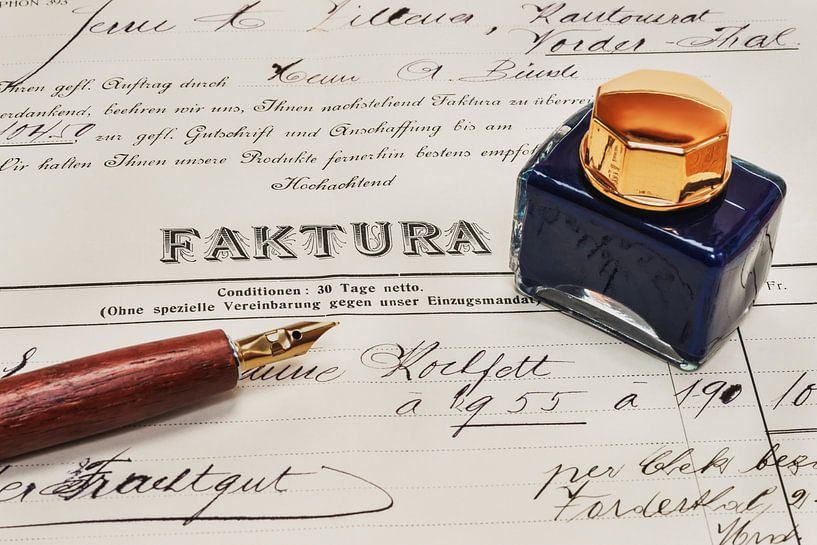 PHON 393
Kantonsrat
Vorder-Thal.
Ihren gefl. Auftrag durch Herrn A.
verdankend, beehren wir uns, Ihnen nachstehend Faktura zu überre
104.50 zur gefl. Gutschrift und Anschaffung bis am
Wir halten Ihnen unsere Produkte fernerhin bestens empfo
Hochachtend
FAKTURA
Conditionen: 30 Tage netto.
(Ohne spezielle Vereinbarung gegen unser Einzugsmandat
Fr.
Kochfett
a 955 à 190 10
Frachtgut
per
Vorderthal,